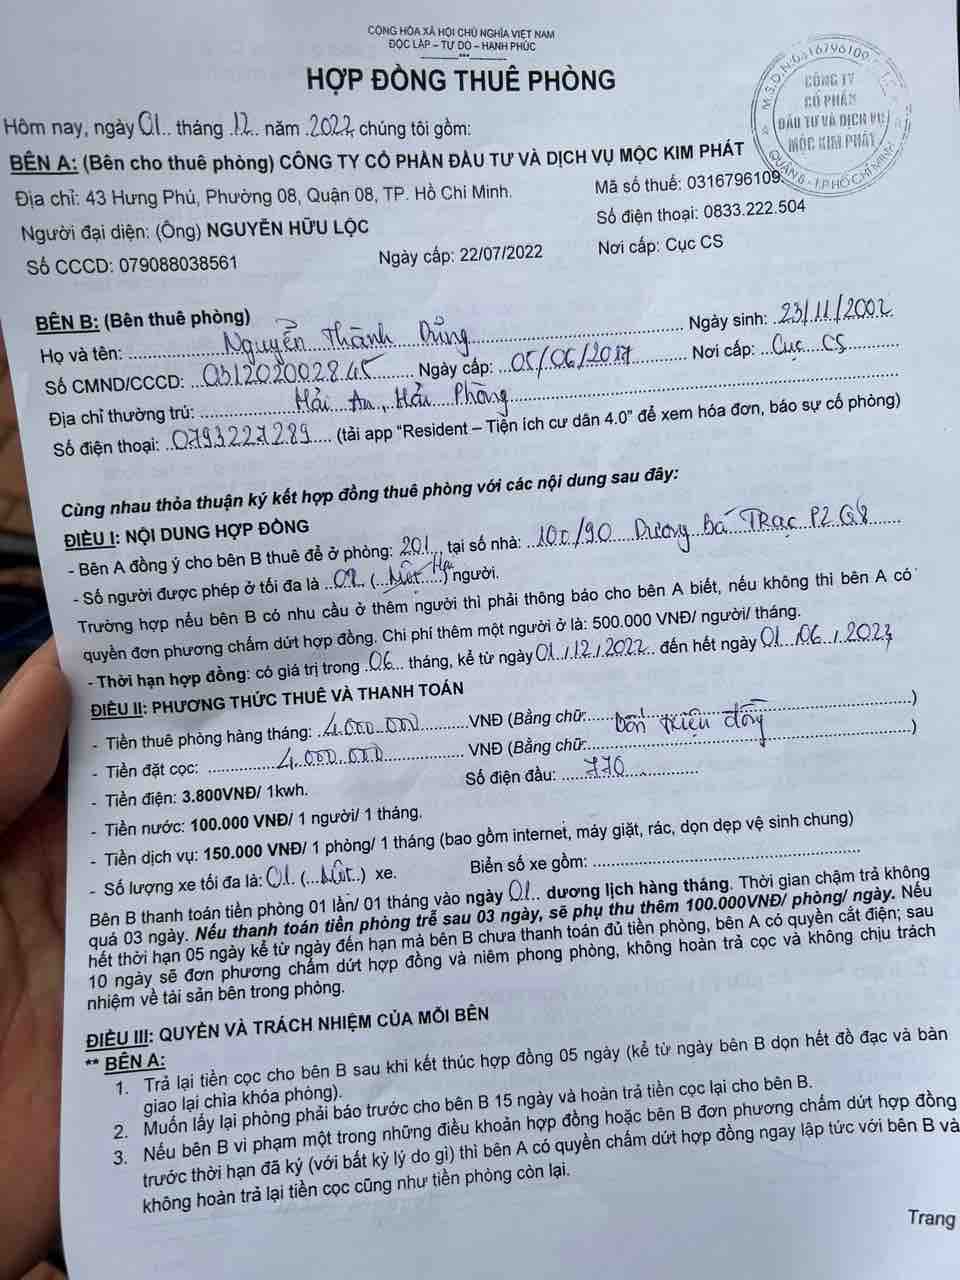 CỘNG HÒA XÃ HỘI CHỦ NGHĨA VIỆT NAM
ĐỘC LẬP – TỰ DO – HẠNH PHÚC
***
HỢP ĐỒNG THUÊ PHÒNG
M.S.D.N:0316796109
CÔNG TY
CỔ PHẦN
ĐẦU TƯ VÀ DỊCH VỤ
MỘC KIM PHÁT
QUẬN 8 - T.P HỒ CHÍ MINH
Hôm nay, ngày 01 tháng 12 năm 2022, chúng tôi gồm:
BÊN A: (Bên cho thuê phòng) CÔNG TY CỔ PHẦN ĐẦU TƯ VÀ DỊCH VỤ MỘC KIM PHÁT
Địa chỉ: 43 Hưng Phú, Phường 08, Quận 08, TP. Hồ Chí Minh. Mã số thuế: 0316796109.
Người đại diện: (Ông) NGUYỄN HỮU LỘC Số điện thoại: 0833.222.504
Số CCCD: 079088038561 Ngày cấp: 22/07/2022 Nơi cấp: Cục CS
BÊN B: (Bên thuê phòng)
Họ và tên: Nguyễn Thành Dũng Ngày sinh: 23/11/2002
Số CMND/CCCD: 031202002845 Ngày cấp: 05/06/2017 Nơi cấp: Cục CS
Địa chỉ thường trú: Hải An, Hải Phòng
Số điện thoại: 0793227289 (tải app "Resident – Tiện ích cư dân 4.0" để xem hóa đơn, báo sự cố phòng)
Cùng nhau thỏa thuận ký kết hợp đồng thuê phòng với các nội dung sau đây:
ĐIỀU I: NỘI DUNG HỢP ĐỒNG
- Bên A đồng ý cho bên B thuê để ở phòng: 201 tại số nhà: 100/90 Dương Bá Trạc P2 Q8
- Số người được phép ở tối đa là 02 (Một Hai) người.
Trường hợp nếu bên B có nhu cầu ở thêm người thì phải thông báo cho bên A biết, nếu không thì bên A có
quyền đơn phương chấm dứt hợp đồng. Chi phí thêm một người ở là: 500.000 VNĐ/ người/ tháng.
- Thời hạn hợp đồng: có giá trị trong 06 tháng, kể từ ngày 01/12/2022 đến hết ngày 01/06/2023
ĐIỀU II: PHƯƠNG THỨC THUÊ VÀ THANH TOÁN
- Tiền thuê phòng hàng tháng: 4.000.000 VNĐ (Bằng chữ: Bốn triệu đồng)
- Tiền đặt cọc: 4.000.000 VNĐ (Bằng chữ: )
- Tiền điện: 3.800VNĐ/ 1kwh. Số điện đầu: 770
- Tiền nước: 100.000 VNĐ/ 1 người/ 1 tháng.
- Tiền dịch vụ: 150.000 VNĐ/ 1 phòng/ 1 tháng (bao gồm internet, máy giặt, rác, dọn dẹp vệ sinh chung)
- Số lượng xe tối đa là: 01 (Một) xe. Biển số xe gồm:
Bên B thanh toán tiền phòng 01 lần/ 01 tháng vào ngày 01 dương lịch hàng tháng. Thời gian chậm trả không
quá 03 ngày. Nếu thanh toán tiền phòng trễ sau 03 ngày, sẽ phụ thu thêm 100.000VNĐ/ phòng/ ngày. Nếu
hết thời hạn 05 ngày kể từ ngày đến hạn mà bên B chưa thanh toán đủ tiền phòng, bên A có quyền cắt điện; sau
10 ngày sẽ đơn phương chấm dứt hợp đồng và niêm phong phòng, không hoàn trả cọc và không chịu trách
nhiệm về tài sản bên trong phòng.
ĐIỀU III: QUYỀN VÀ TRÁCH NHIỆM CỦA MỖI BÊN
** BÊN A:
1. Trả lại tiền cọc cho bên B sau khi kết thúc hợp đồng 05 ngày (kể từ ngày bên B dọn hết đồ đạc và bàn
giao lại chìa khóa phòng).
2. Muốn lấy lại phòng phải báo trước cho bên B 15 ngày và hoàn trả tiền cọc lại cho bên B.
3. Nếu bên B vi phạm một trong những điều khoản hợp đồng hoặc bên B đơn phương chấm dứt hợp đồng
trước thời hạn đã ký (với bất kỳ lý do gì) thì bên A có quyền chấm dứt hợp đồng ngay lập tức với bên B và
không hoàn trả lại tiền cọc cũng như tiền phòng còn lại.
Trang